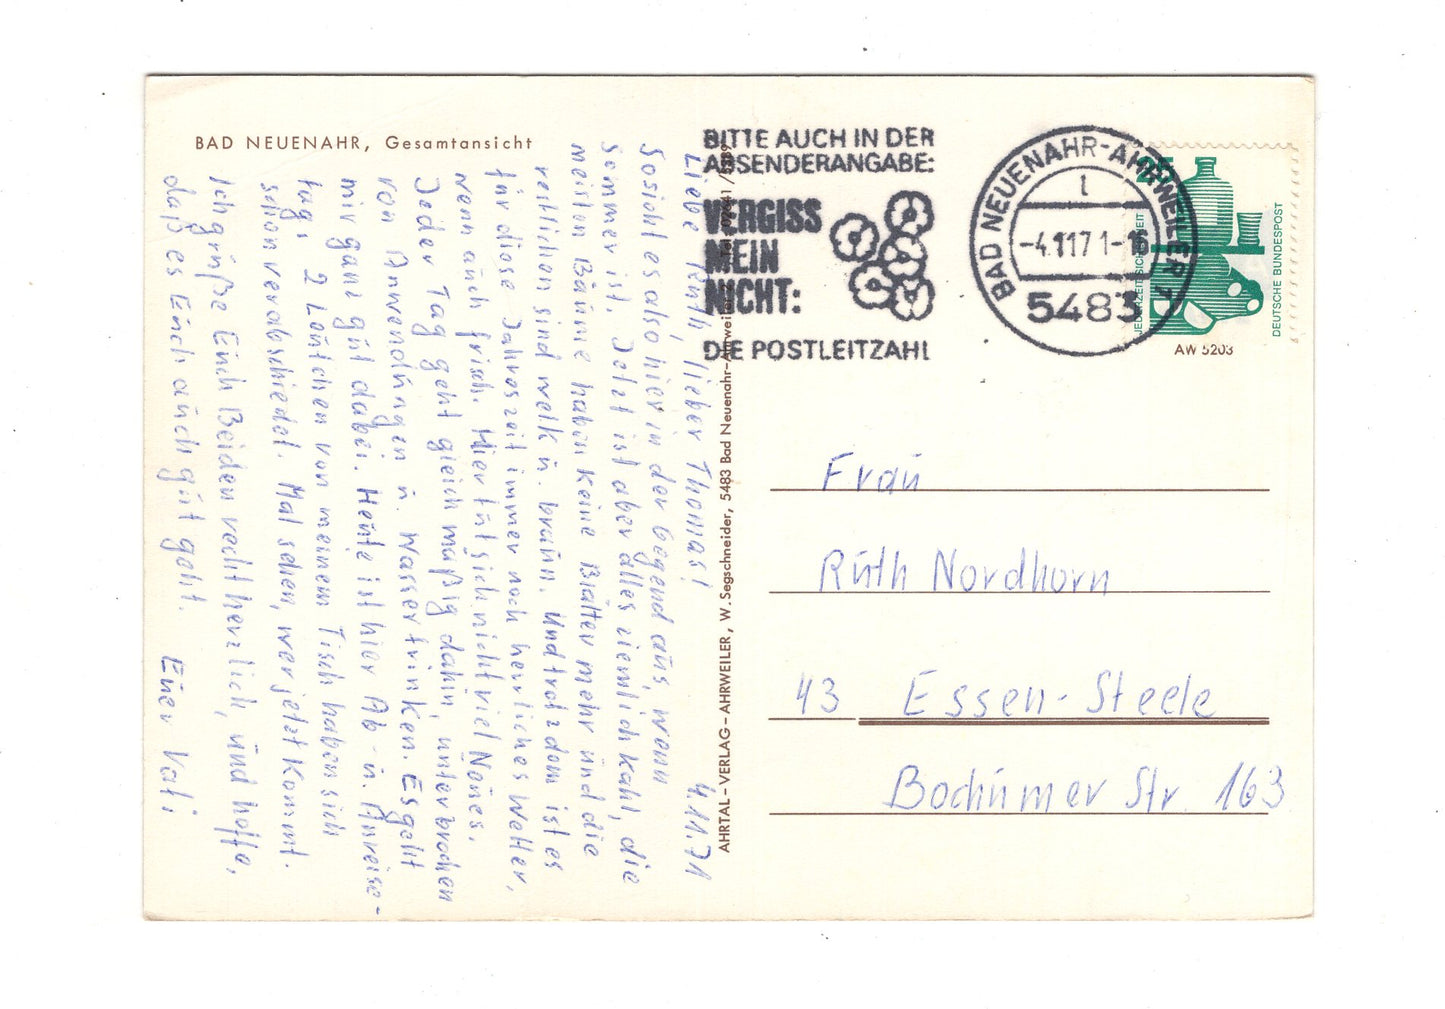 BAD NEUENAHR, Gesamtansicht
Liebe Ruth, lieber Thomas! 4.11.71
So sieht es also hier in der Gegend aus, wenn
Sommer ist. Jetzt ist aber alles ziemlich kahl, die
meisten Bäume haben keine Blätter mehr und die
restlichen sind welk u. braun. Und trotzdem ist es
für diese Jahreszeit immer noch herrliches Wetter,
wenn auch frisch. Hier tut sich nicht viel Neues.
Jeder Tag geht gleichmäßig dahin, unterbrochen
von Anwendungen u. Wassertrinken. Es geht
mir ganz gut dabei. Heute ist hier Ab- u. Anreise-
tag. 2 Leutchen von meinem Tisch haben sich
schon verabschiedet. Mal sehen, wer jetzt kommt.
Ich grüße Euch Beiden recht herzlich, und hoffe,
daß es Euch auch gut geht. Euer Vati
AHRTAL-VERLAG-AHRWEILER, W. Segschneider, 5483 Bad Neuenahr-Ahrweiler
BITTE AUCH IN DER
ABSENDERANGABE:
VERGISS
MEIN
NICHT:
DIE POSTLEITZAHL
BAD NEUENAHR-AHRWEILER
-4.11.71-16
5483
JEDERZEIT SICHERHEIT
DEUTSCHE BUNDESPOST
AW 5203
Frau
Ruth Nordhorn
43 Essen-Steele
Bochumer Str. 163